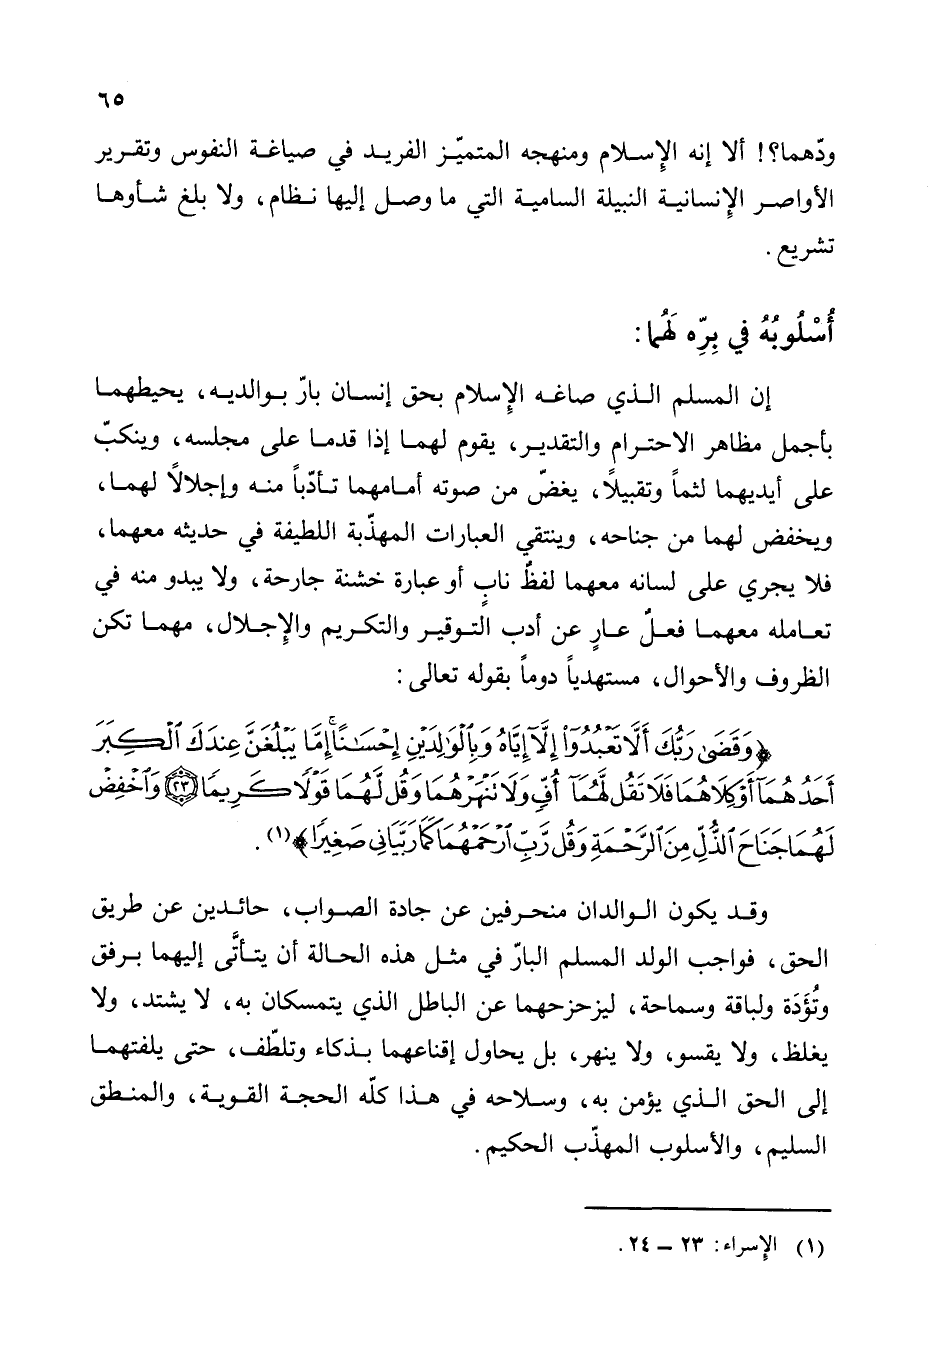 ٦٥
ودّهما؟! ألا إنه الإسلام ومنهجه المتميّز الفريد في صياغة النفوس وتقرير
الأواصر الإنسانية النبيلة السامية التي ما وصل إليها نظام، ولا بلغ شأوها
تشريع.
أُسْلُوبُهُ في بِرِّه لَهُما:
إن المسلم الذي صاغه الإسلام بحق إنسان بارّ بوالديه، يحيطهما
بأجمل مظاهر الاحترام والتقدير، يقوم لهما إذا قدما على مجلسه، وينكبّ
على أيديهما لثماً وتقبيلاً، يغضّ من صوته أمامهما تأدّباً منه وإجلالاً لهما،
ويخفض لهما من جناحه، وينتقي العبارات المهذّبة اللطيفة في حديثه معهما،
فلا يجري على لسانه معهما لفظٌ نابٍ أو عبارة خشنة جارحة، ولا يبدو منه في
تعامله معهما فعلٌ عارٍ عن أدب التوقير والتكريم والإجلال، مهما تكن
الظروف والأحوال، مستهدياً دوماً بقوله تعالى:
﴿وَقَضَىٰ رَبُّكَ أَلَّا تَعْبُدُوٓا۟ إِلَّآ إِيَّاهُ وَبِٱلْوَٰلِدَيْنِ إِحْسَٰنًا ۚ إِمَّا يَبْلُغَنَّ عِندَكَ ٱلْكِبَرَ
أَحَدُهُمَآ أَوْ كِلَاهُمَا فَلَا تَقُل لَّهُمَآ أُفٍّ وَلَا تَنْهَرْهُمَا وَقُل لَّهُمَا قَوْلًا كَرِيمًا ۝٢٣ وَٱخْفِضْ
لَهُمَا جَنَاحَ ٱلذُّلِّ مِنَ ٱلرَّحْمَةِ وَقُل رَّبِّ ٱرْحَمْهُمَا كَمَا رَبَّيَانِى صَغِيرًا﴾(١).
وقد يكون الوالدان منحرفين عن جادة الصواب، حائدين عن طريق
الحق، فواجب الولد المسلم البارّ في مثل هذه الحالة أن يتأتَّى إليهما برفق
وتُؤَدَة ولباقة وسماحة، ليزحزحهما عن الباطل الذي يتمسكان به، لا يشتد، ولا
يغلظ، ولا يقسو، ولا ينهر، بل يحاول إقناعهما بذكاء وتلطّف، حتى يلفتهما
إلى الحق الذي يؤمن به، وسلاحه في هذا كلّه الحجة القوية، والمنطق
السليم، والأسلوب المهذّب الحكيم.
(١) الإسراء: ٢٣ – ٢٤.